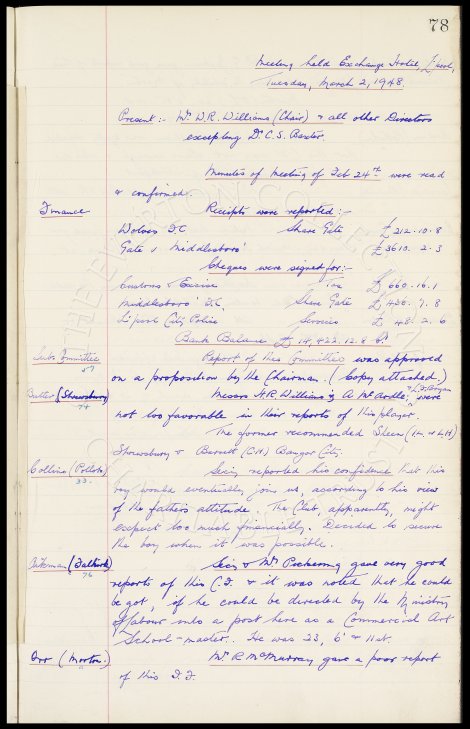 78
Meeting held Exchange Hotel, L'pool,
Tuesday, March 2, 1948.
Present :- Mr W.R. Williams (Chair) & all other Directors
excepting Dr. C.S. Baxter.
Minutes of Meeting of Feb 24th were read
& confirmed.
Finance Receipts were reported :-
Wolves F.C. Share Gate £ 212 . 10 . 8
Gate v Middlesboro' £ 3610 . 2 . 3
Cheques were signed for :-
Customs & Excise Tax £ 660 . 16 . 1
Middlesboro' F.C. Share Gate £ 436 . 7 . 8
L'pool City Police Services £ 48 . 2 . 6
Bank Balance £ 14,422 . 12 . 8
Sub. Committee Report of this Committee was approved
57
on a proposition by the Chairman. (Copy attached.)
Butler (Shrewsbury) Messrs H.R. Williams, A. McArdle, & were
74
not too favorable in their reports of this player.
The former recommended Sheen (I.H. or L.H)
Shrewsbury & Bennett (C.H.) Bangor City.
Collins (Pollok) Secy. reported his confidence that this
33.
boy would eventually join us, according to his view
of the father's attitude. The Club, apparently, might
expect too much financially. Decided to secure
the boy when it was possible.
(Falkirk) Secy. & Mr Pickering gave very good
76
reports of this C.F. & it was noted that he could
be got, if he could be directed by the Ministry
of Labour into a post here as a Commercial Art
School-master. He was 23, 6' & 11 st.
Orr (Morton.) Mr R. McMurray gave a poor report
of this I.F.
THE EVERTON COLLECTION